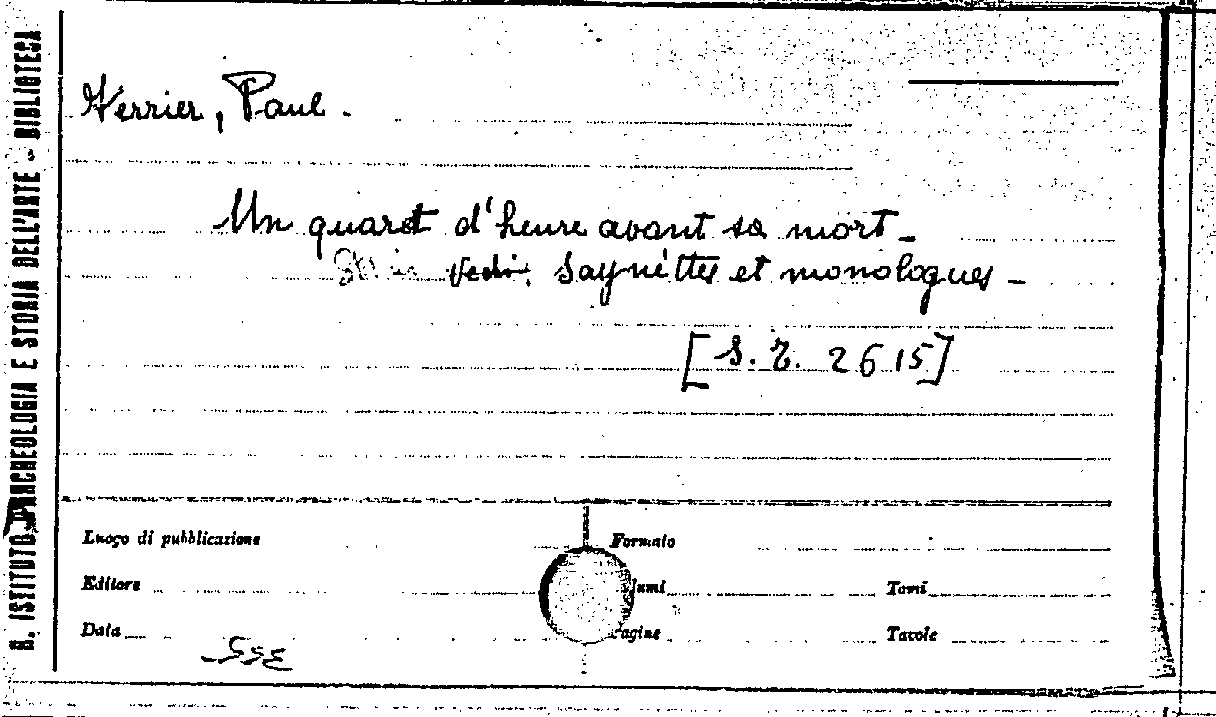 R. ISTITUTO D'ARCHEOLOGIA E STORIA DELL'ARTE - BIBLIOTECA
Verrier, Paul.
Un quart d'heure avant sa mort -
Vedi: Saynèttes et monologues -
[S. T. 2615]
Luogo di pubblicazione
Formato
Editore
lumi
Tomi
Data
agine
Tavole